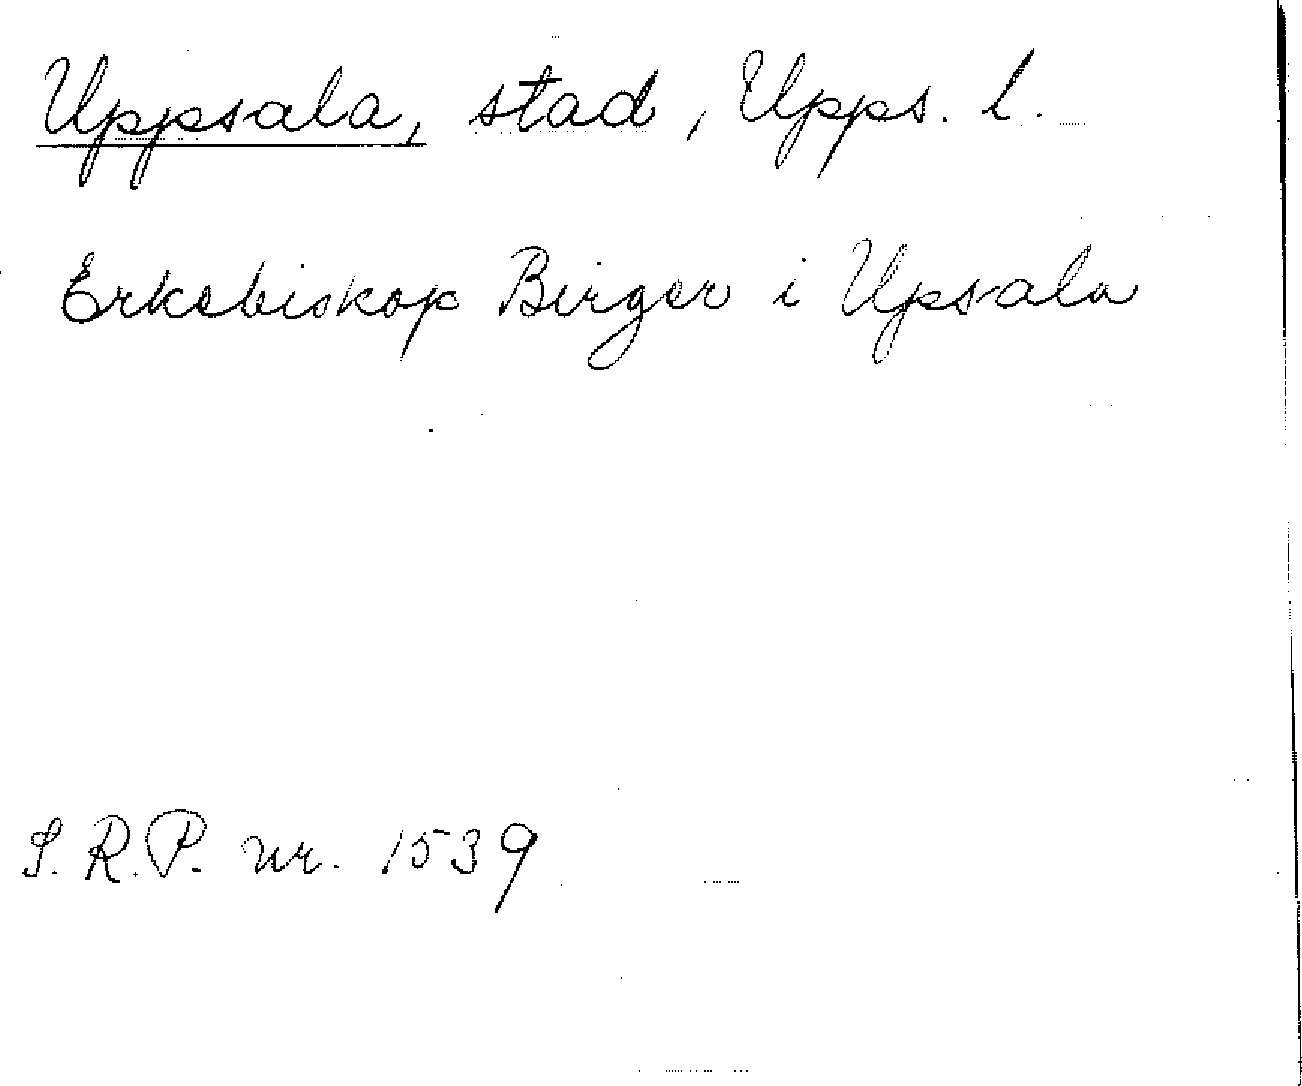 Uppsala, stad, Upps. l.
Erkebiskop Birger i Upsala
S.R.P. nr. 1539